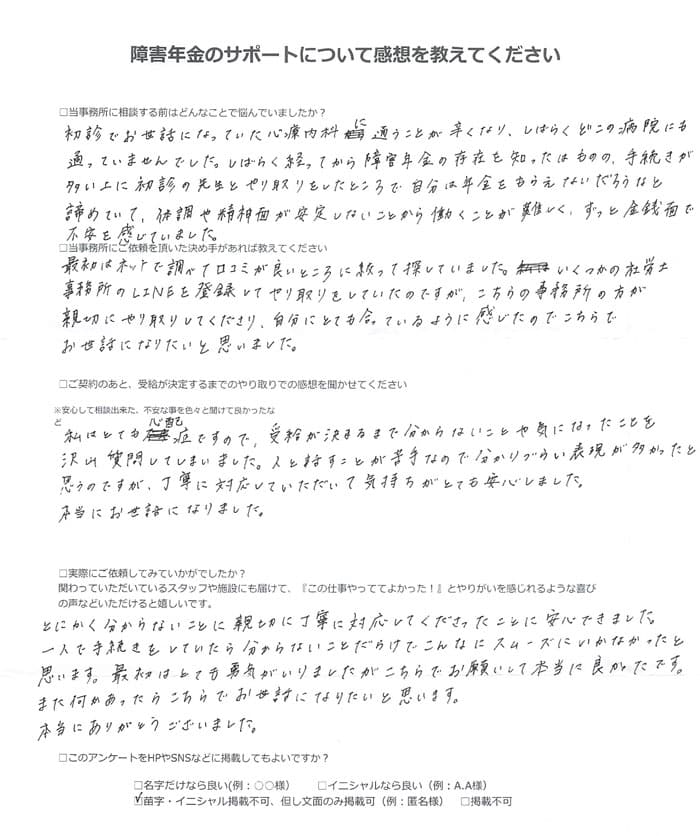 障害年金のサポートについて感想を教えてください
□当事務所に相談する前はどんなことで悩んでいましたか？
初診でお世話になっていた心療内科に通うことが辛くなり、しばらくどこの病院にも
通っていませんでした。しばらく経ってから障害年金の存在を知ったはものの、手続きが
多い上に初診の先生とやり取りをしたところで自分は年金をもらえないだろうなと
諦めていて、体調や精神面が安定しないことから働くことが難しく、ずっと金銭面で
不安を感じていました。
□当事務所にご依頼を頂いた決め手があれば教えてください
最初はネットで調べて口コミが良いところに絞って探していました。いくつかの社労士
事務所のLINEを登録してやり取りをしていたのですが、こちらの事務所の方が
親切にやり取りしてくださり、自分にとても合っているように感じたのでこちらで
お世話になりたいと思いました。
□ご契約のあと、受給が決定するまでのやり取りでの感想を聞かせてください
※安心して相談出来た、不安な事を色々と聞けて良かったな
ど
私はとても心配症ですので、受給が決まるまで分からないことや気になったことを
沢山質問してしまいました。人と話すことが苦手なので分かりづらい表現が多かったと
思うのですが、丁寧に対応していただいて気持ちがとても安心しました。
本当にお世話になりました。
□実際にご依頼してみていかがでしたか？
関わっていただいているスタッフや施設にも届けて、『この仕事やっててよかった！』とやりがいを感じれるような喜び
の声などいただけると嬉しいです。
とにかく分からないことに親切に丁寧に対応してくださったことに安心できました。
一人で手続きをしていたら分からないことだらけでこんなにスムーズにいかなかったと
思います。最初はとても勇気がいりましたがこちらでお願いして本当に良かったです。
また何かあったらこちらでお世話になりたいと思います。
本当にありがとうございました。
□このアンケートをHPやSNSなどに掲載してもよいですか？
□名字だけなら良い(例：○○様）　□イニシャルなら良い（例：A.A様）
☑苗字・イニシャル掲載不可、但し文面のみ掲載可（例：匿名様）　□掲載不可